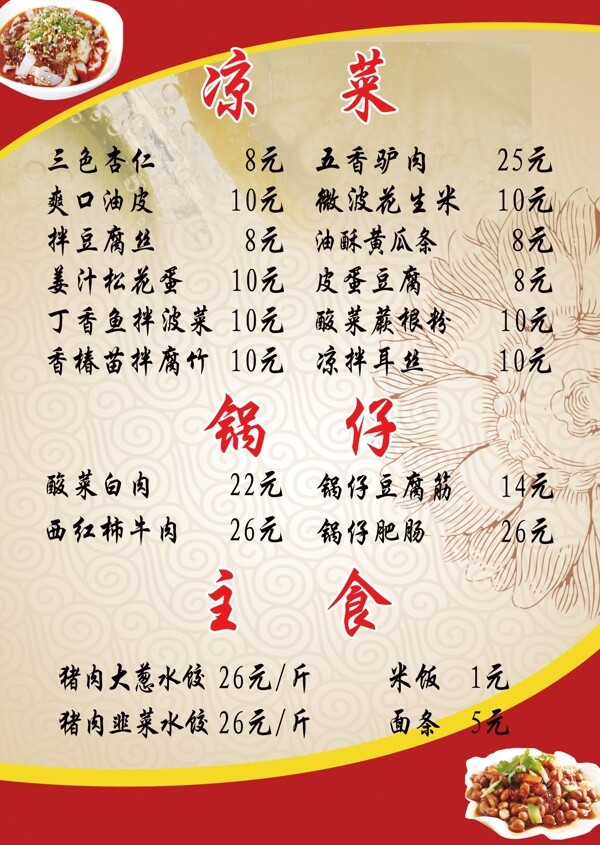 凉 菜
三色杏仁 8元 五香驴肉 25元
爽口油皮 10元 微波花生米 10元
拌豆腐丝 8元 油酥黄瓜条 8元
姜汁松花蛋 10元 皮蛋豆腐 8元
丁香鱼拌波菜 10元 酸菜蕨根粉 10元
香椿苗拌腐竹 10元 凉拌耳丝 10元
锅 仔
酸菜白肉 22元 锅仔豆腐筋 14元
西红柿牛肉 26元 锅仔肥肠 26元
主 食
猪肉大葱水饺 26元/斤 米饭 1元
猪肉韭菜水饺 26元/斤 面条 5元